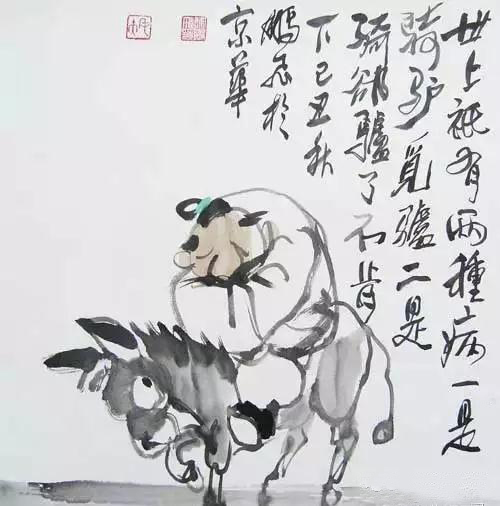 世上祇有兩種病一是
騎驴覓驢二是
騎卻驢了不肯
下己丑秋
鵬飛於
京華